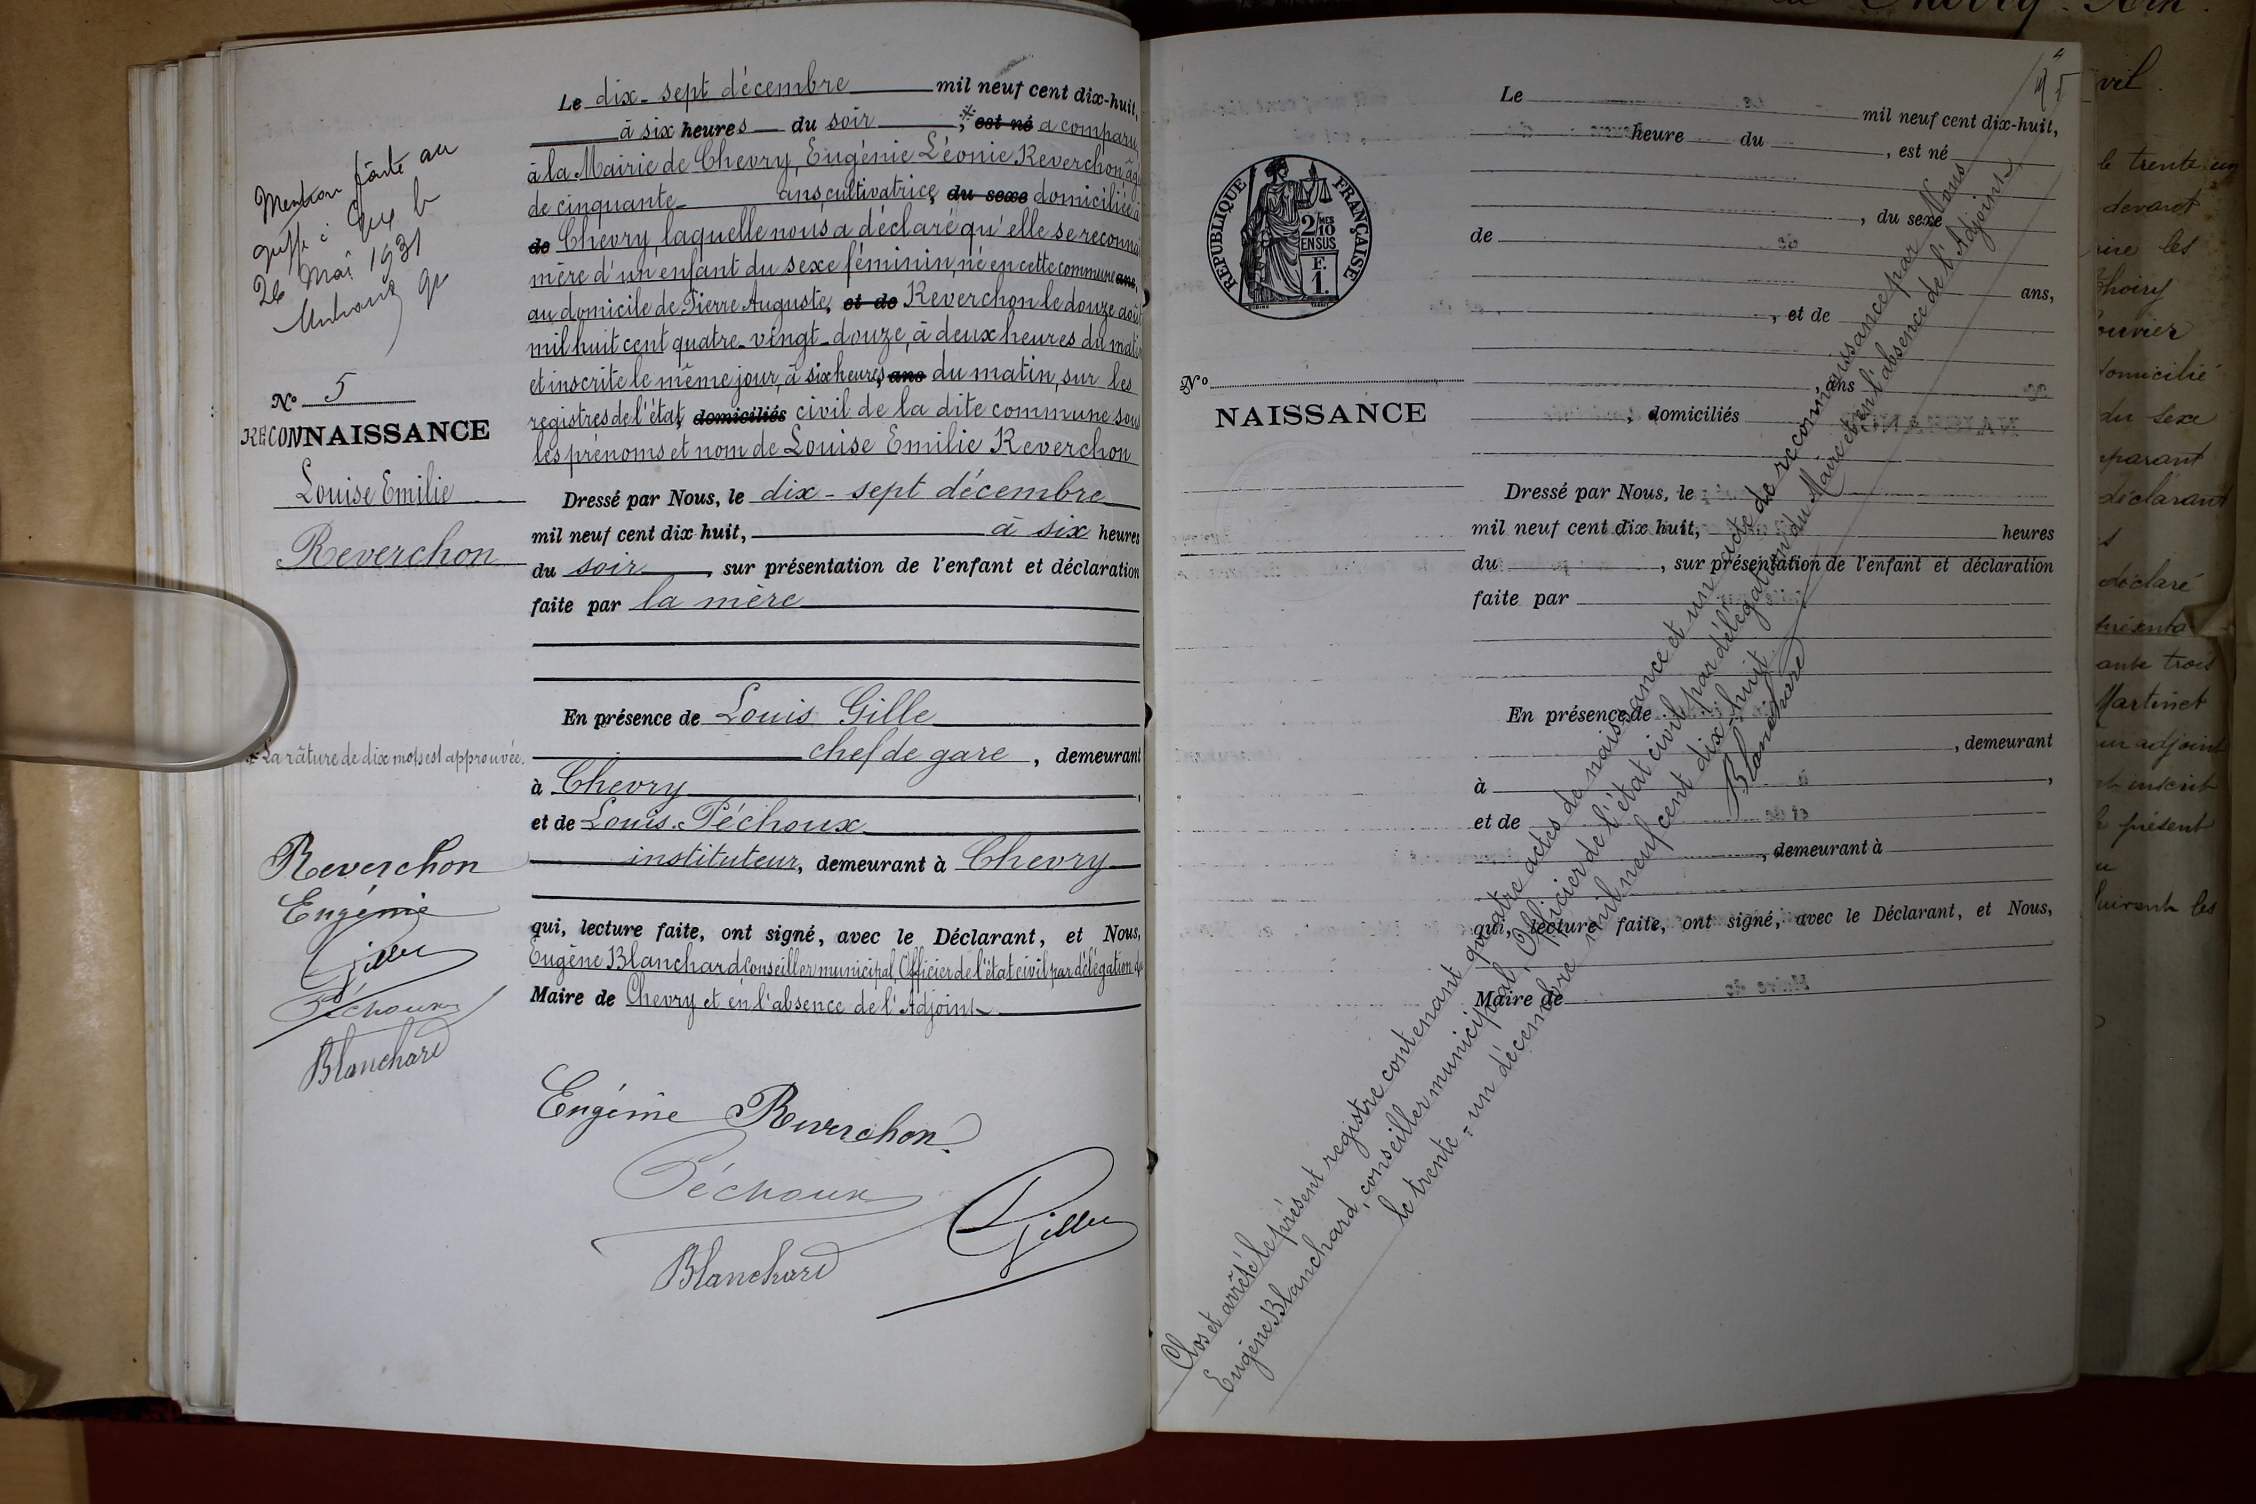 Mention faite au
greffe à Gex le
26 Mai 1931
N° 5
RECONNAISSANCE
Louise Emilie
Reverchon
* La râture de dix mots est approuvée.
Reverchon
Eugénie
Gille
Péchoux
Blanchard
Le dix-sept décembre mil neuf cent dix-huit,
à six heures du soir, * est né a comparu
à la Mairie de Chevry, Eugénie Léonie Reverchon âg
de cinquante ans, cultivatrice, du sexe domiciliée à
de Chevry, laquelle nous a déclaré qu'elle se reconna
mère d'un enfant du sexe féminin, né en cette commune ans,
au domicile de Pierre Auguste, et de Reverchon le douze août
mil huit cent quatre-vingt-douze, à deux heures du mati
et inscrite le même jour, à six heures ans du matin, sur les
registres de l'état, domiciliés civil de la dite commune sous
les prénoms et nom de Louise Emilie Reverchon
Dressé par Nous, le dix-sept décembre
mil neuf cent dix huit, à six heures
du soir, sur présentation de l'enfant et déclaration
faite par la mère
En présence de Louis Gille
chef de gare, demeurant
à Chevry,
et de Louis Péchoux
instituteur, demeurant à Chevry
qui, lecture faite, ont signé, avec le Déclarant, et Nous,
Eugène Blanchard Conseiller municipal, Officier de l'état civil, par délégation du
Maire de Chevry et en l'absence de l'Adjoint
Eugénie Reverchon
Péchoux
Gille
Blanchard
RÉPUBLIQUE FRANÇAISE
2/10 MES
EN SUS
F.
1.
N°
NAISSANCE
Le mil neuf cent dix-huit,
heure du, est né
, du sexe
de
ans,
, et de
ans
, domiciliés
Dressé par Nous, le
mil neuf cent dix huit, heures
du, sur présentation de l'enfant et déclaration
faite par
En présence de
, demeurant
à,
et de
, demeurant à
qui, lecture faite, ont signé, avec le Déclarant, et Nous,
Maire de
Clos et arrêté le présent registre contenant quatre actes de naissance et un acte de reconnaissance par Nous
Eugène Blanchard, conseiller municipal, Officier de l'état civil, par délégation du Maire et en l'absence de l'Adjoint
le trente-un décembre mil neuf cent dix-huit
Blanchard
vil.
le trente un
devant
ire les
Thoiry
ouvrier
domicilié
du sexe
parant
déclarant
déclaré
présenta
ante trois
Martinet
adjoint
inscrit
présent
suivant les